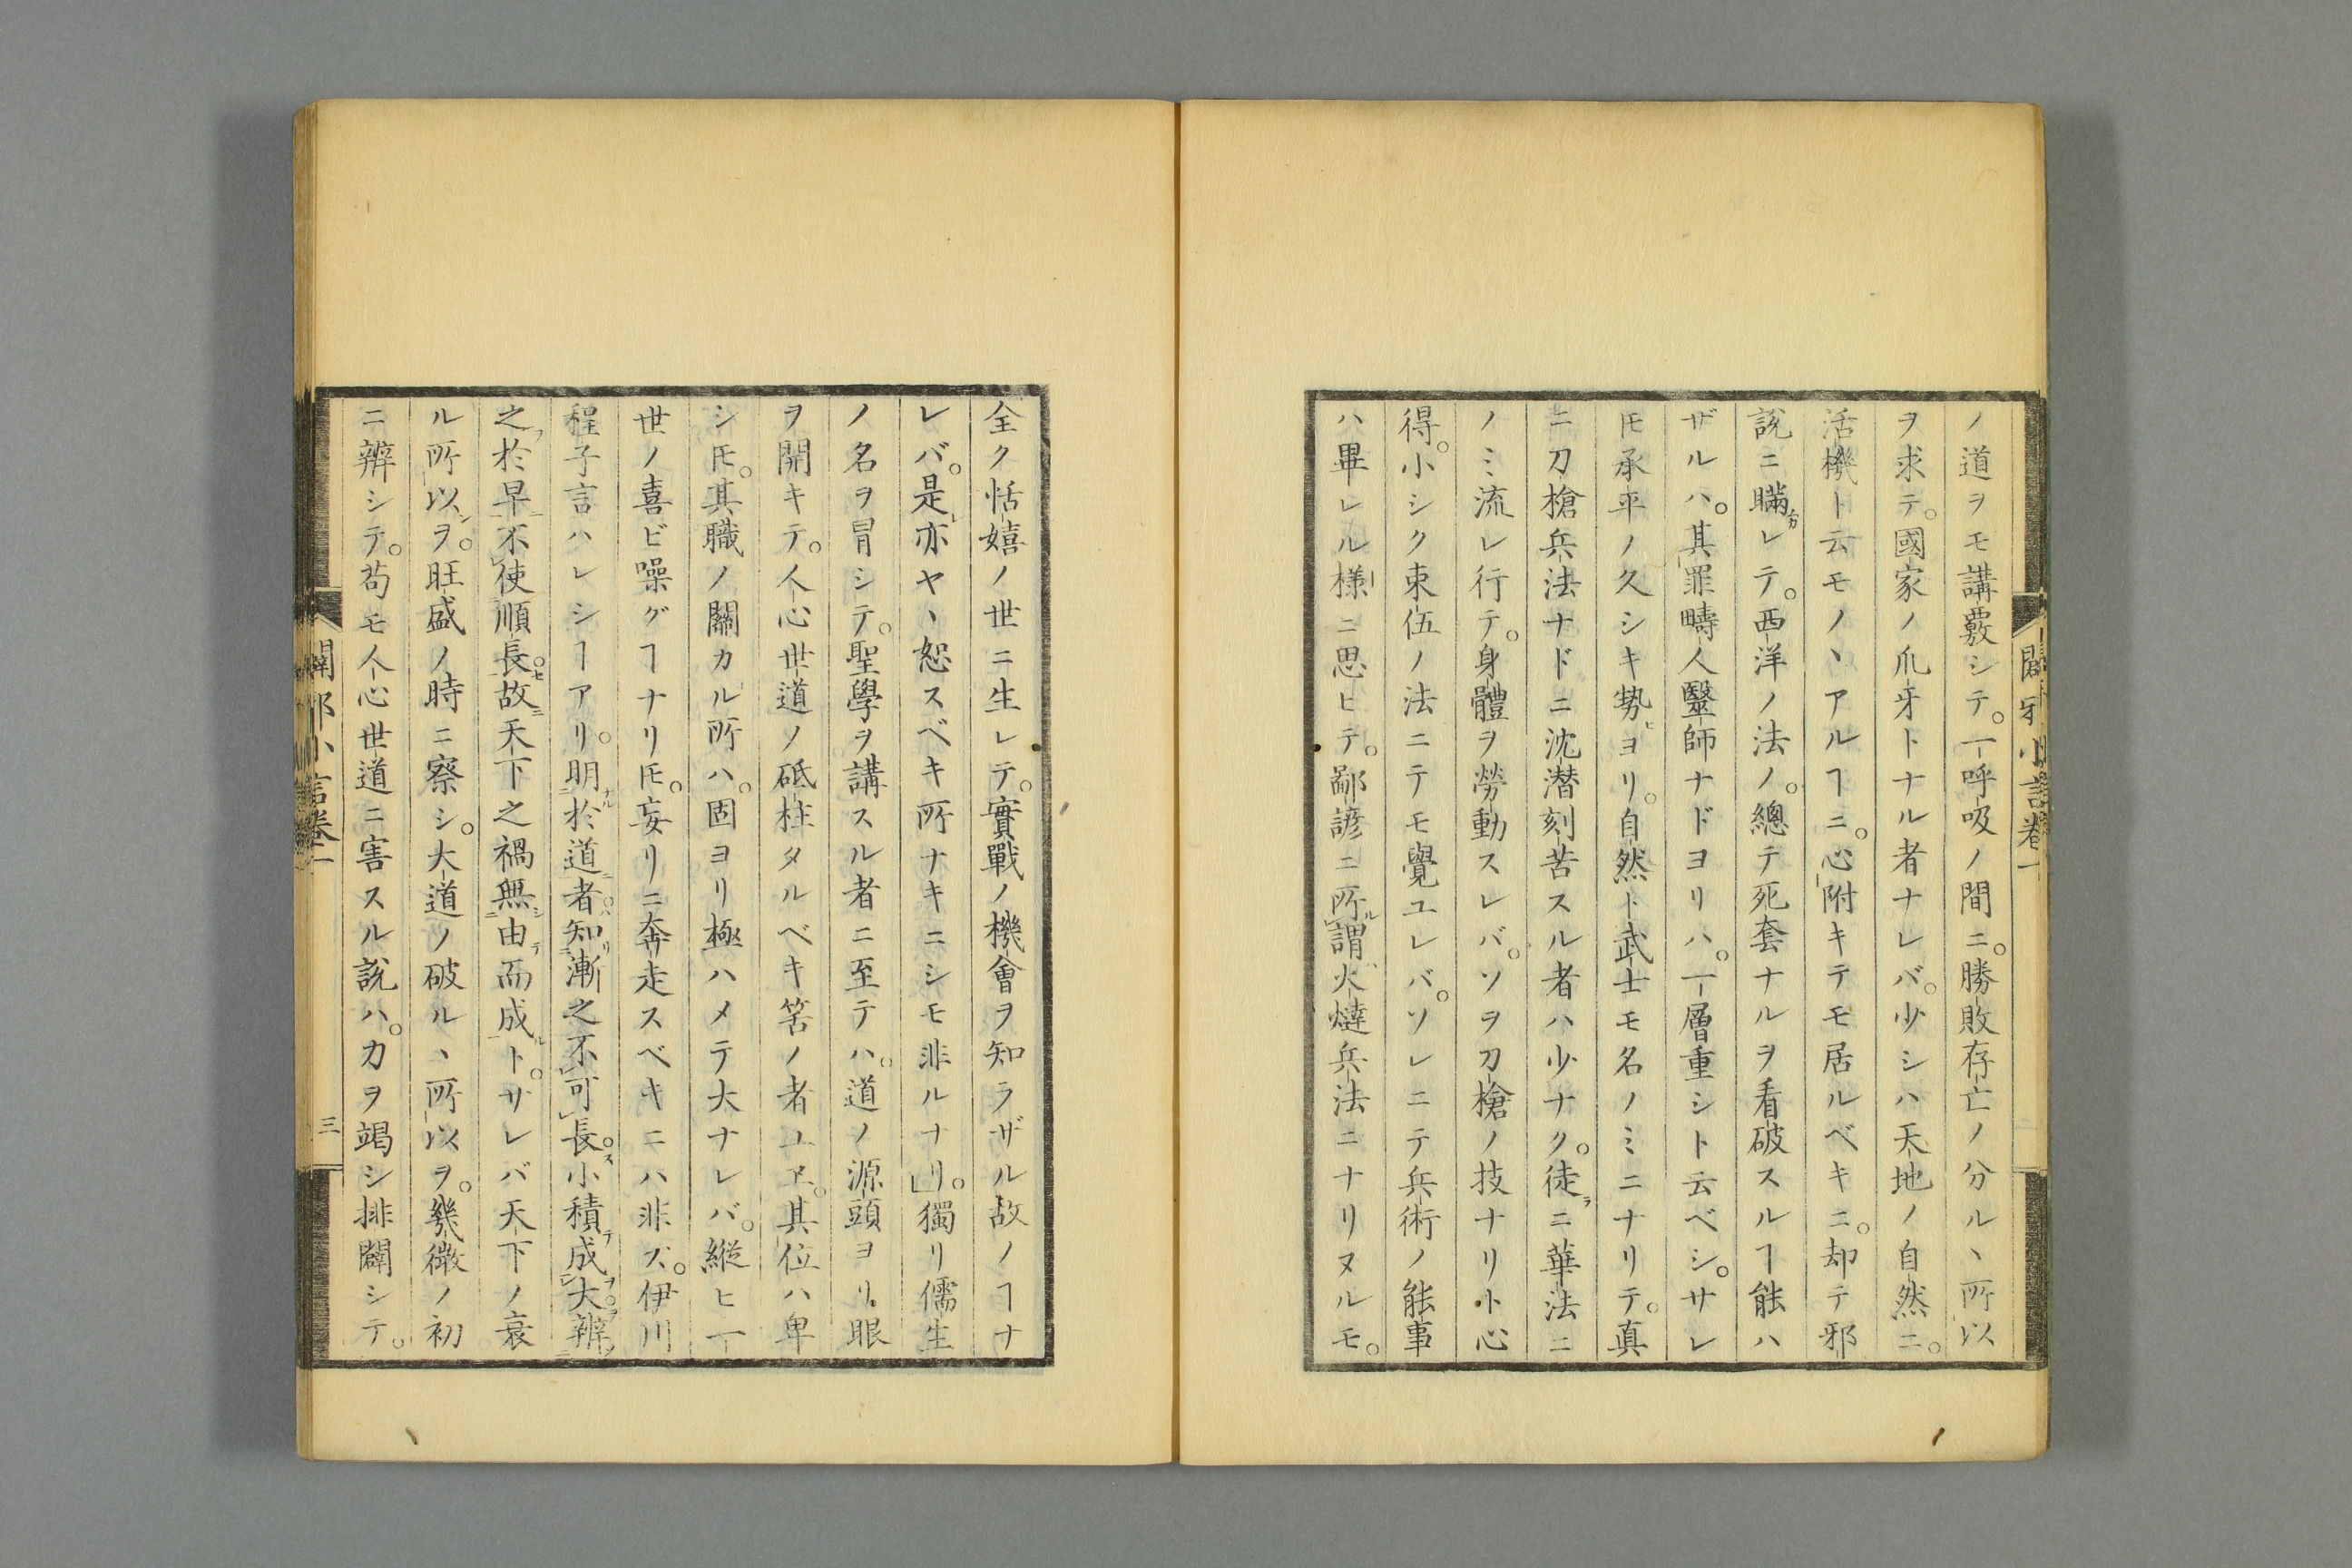 ノ道ヲモ講覈シテ。一呼吸ノ間ニ。勝敗存亡ノ分ルヽ所以
ヲ求テ。國家ノ爪牙トナル者ナレバ。少シハ天地ノ自然ニ。
活機ト云モノヽアルヿニ。心附キテモ居ルベキニ。却テ邪
説ニ瞞レテ。西洋ノ法ノ。總テ死套ナルヲ看破スルヿ能ハ
ザルハ。其罪疇人毉師ナドヨリハ。一層重シト云ベシ。サレ
𪜈承平ノ久シキ勢ヒヨリ。自然ト武士モ名ノミニナリテ。真
ニ刀槍兵法ナドニ沈潜刻苦スル者ハ少ナク。徒ラニ華法ニ
ノミ流レ行テ。身體ヲ勞動スレバ。ソヲ刀槍ノ技ナリト心
得。小シク束伍ノ法ニテモ覺ユレバ。ソレニテ兵術ノ能事
ハ畢レル様ニ思ヒテ。鄙諺ニ所謂ル火燵兵法ニナリヌルモ。
全ク恬嬉ノ世ニ生レテ。實戰ノ機會ヲ知ラザル故ノヿナ
レバ。是レ亦ヤヽ恕スベキ所ナキニシモ非ルナリ」。獨リ儒生
ノ名ヲ冒シテ。聖學ヲ講スル者ニ至テハ。道ノ源頭ヨリ。眼
ヲ開キテ。人心世道ノ砥柱タルベキ筈ノ者ユヱ。其位ハ卑
シ𪜈。其職ノ關カル所ハ。固ヨリ極ハメテ大ナレバ。縦ヒ一
世ノ喜ビ噪グヿナリ𪜈。妄リニ奔走スベキニハ非ズ。伊川
程子言ハレシヿアリ。明於道者知漸之不可長小積成大辨
之於早不使順長故天下之禍無由而成ト。サレバ天下ノ衰
ル所以ヲ。旺盛ノ時ニ察シ。大道ノ破ルヽ所以ヲ。幾微ノ初
ニ辨シテ。苟モ人心世道ニ害スル説ハ。力ヲ竭シ排闢シテ。
闢邪小言卷一
三